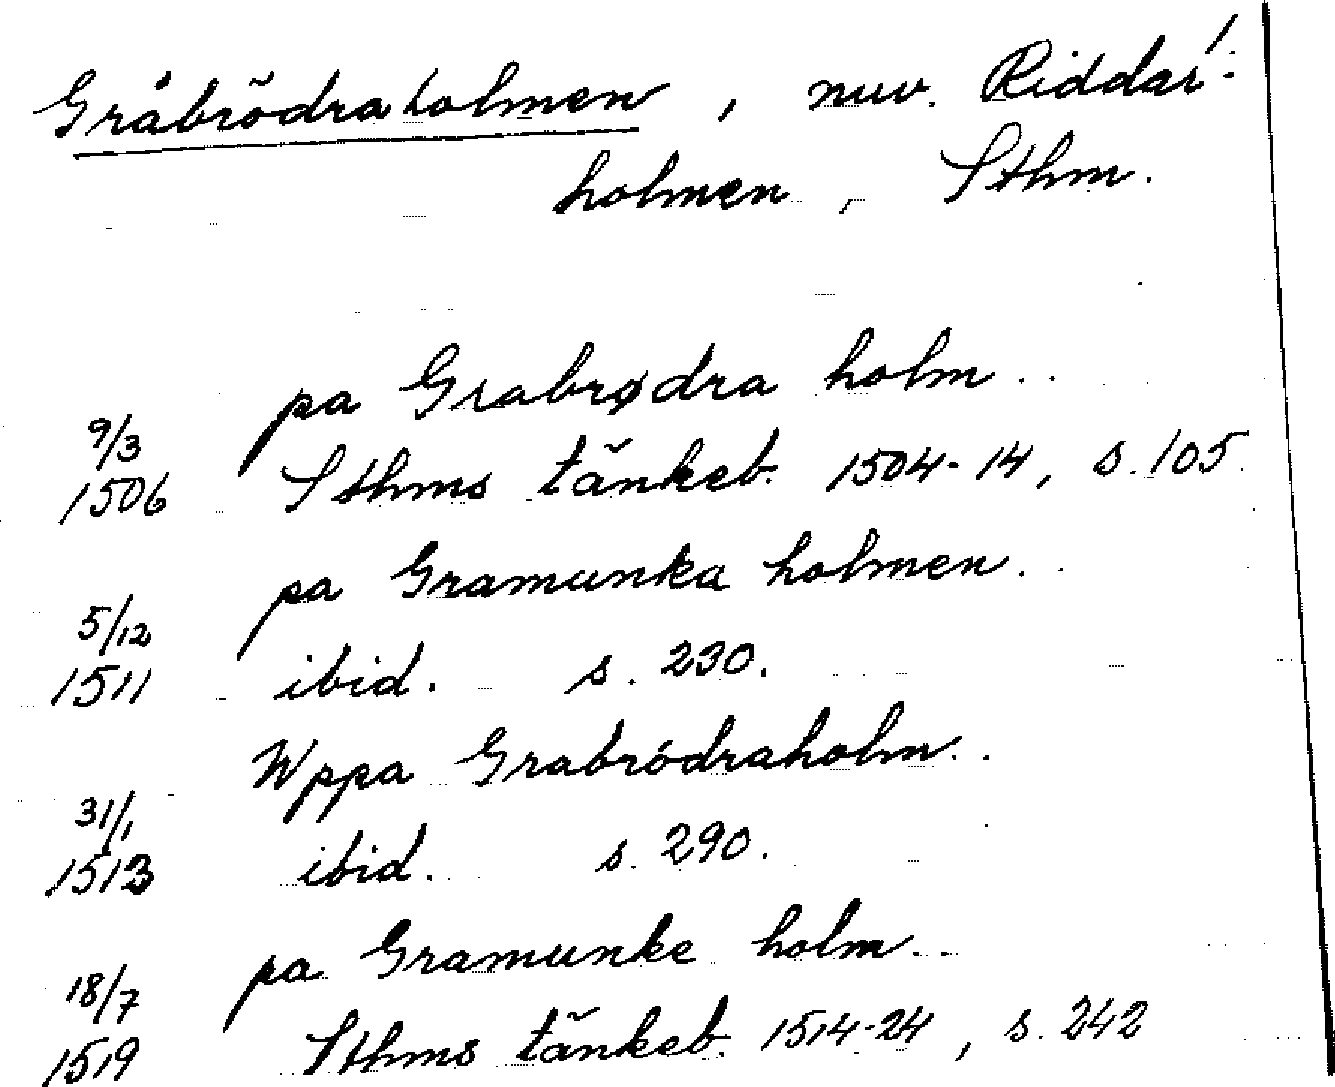 Gråbrödraholmen, nuv. Riddar-
holmen, Sthm.
pa Grabrødra holm..
9/3
1506 Sthms tänkeb. 1504-14, s. 105.
pa Gramunka holmen..
5/12
1511 ibid. s. 230.
Wppa Grabródraholm..
31/1
1513 ibid. s. 290.
pa Gramunke holm..
18/7
1519 Sthms tänkeb. 1514-24, s. 242